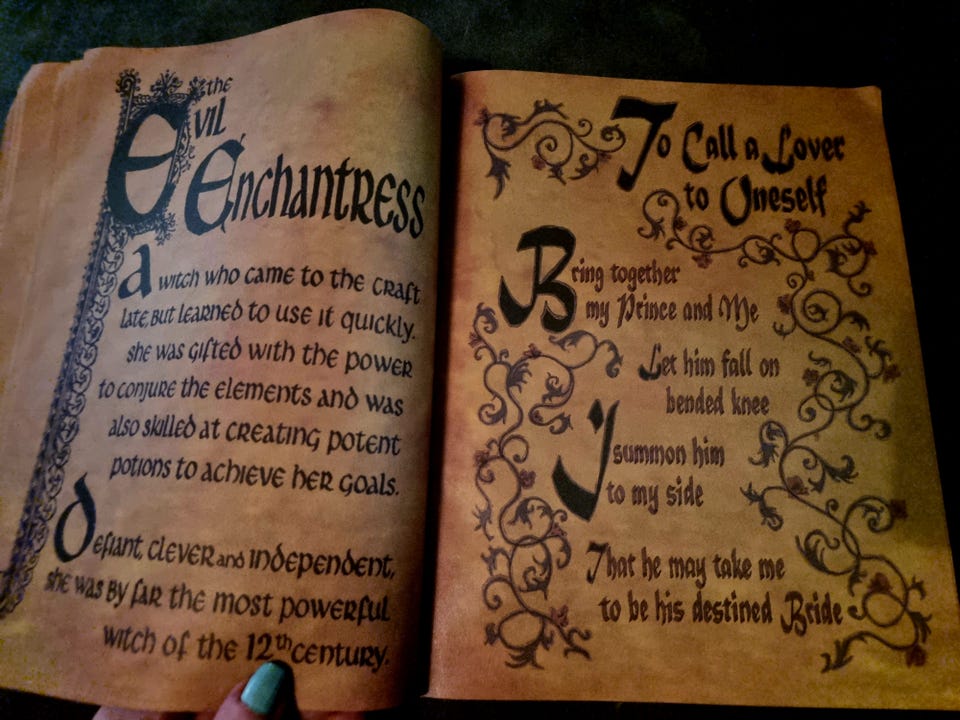 the
Evil
Enchantress
a witch who came to the craft
late but learned to use it quickly.
she was gifted with the power
to conjure the elements and was
also skilled at creating potent
potions to achieve her goals.
defiant, clever and independent,
she was by far the most powerful
witch of the 12th century.
To Call a Lover
to Oneself
Bring together
my Prince and Me
Let him fall on
bended knee
I summon him
to my side
That he may take me
to be his destined Bride